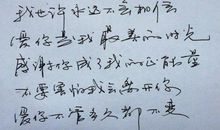 我也许永远不会相信
爱你是我最美的时光
感谢你成了我的正能量
不要害怕我会离开你
爱你不管多久都不变